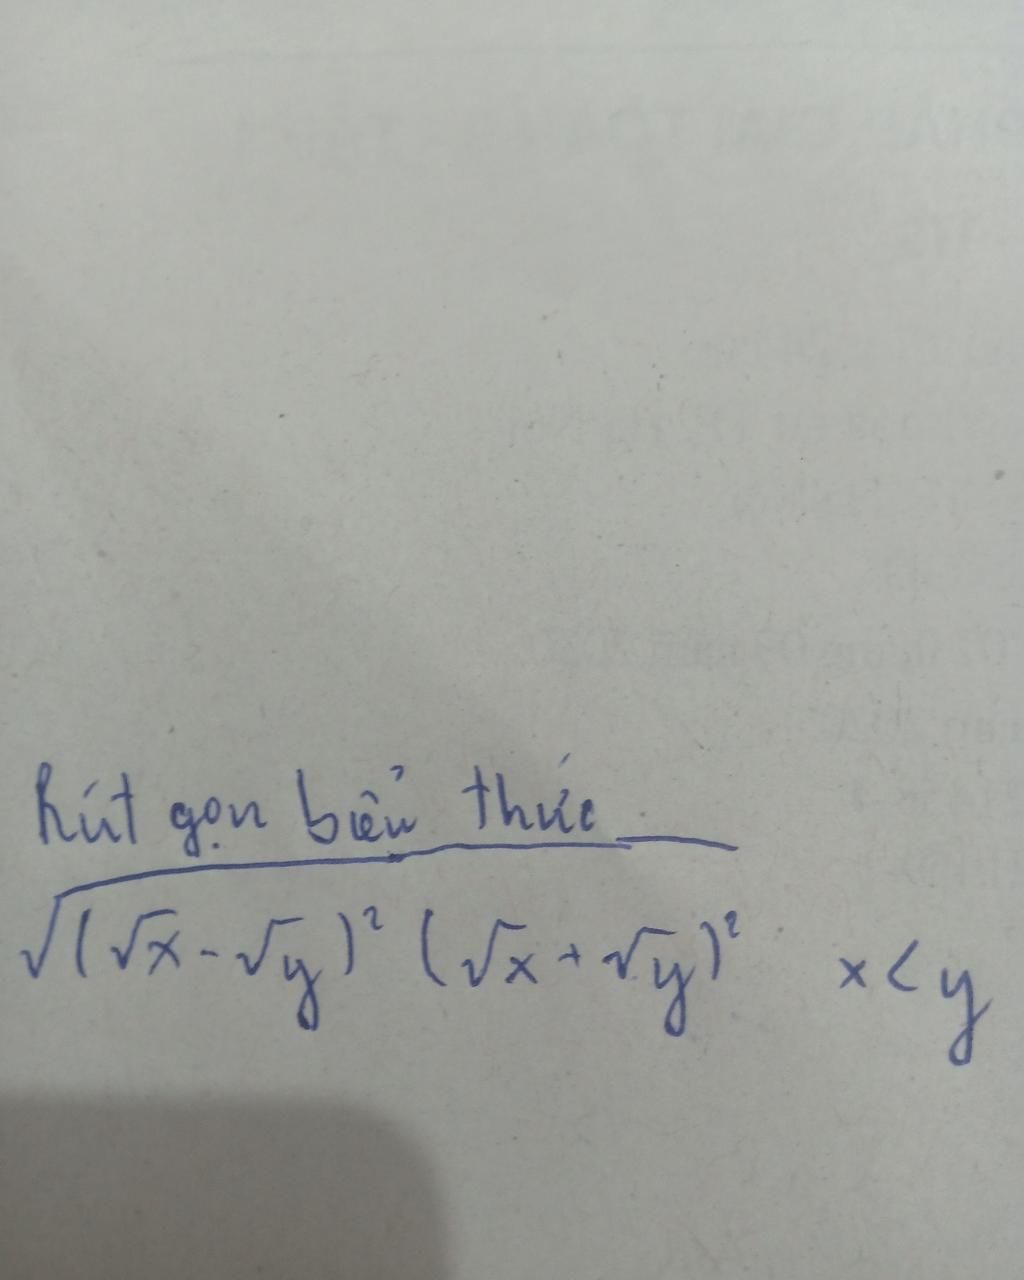 Rút gọn biểu thức
√(√x - √y)² (√x + √y)² x < y